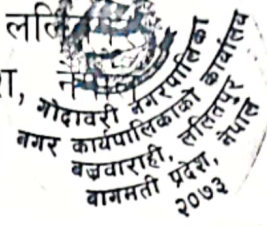 ललि
श, नेपाल
गोदावरी नगरपालिका
नगर कार्यपालिकाको कार्यालय
बज्रवाराही, ललितपुर
बागमती प्रदेश, नेपाल
२०७३